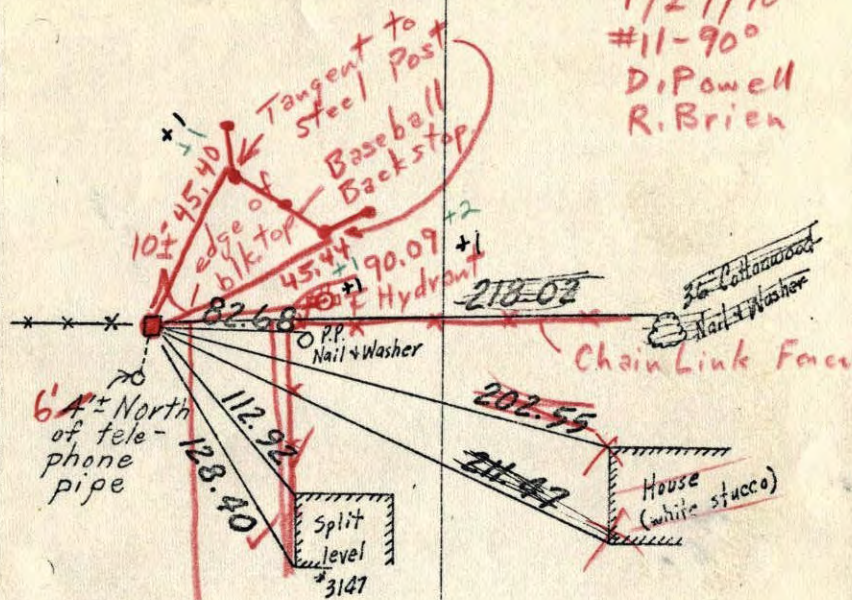 #11-90°
D. Powell
R. Brien
Tangent to
steel post
Baseball
Backstop
x 1
45.40
10±
edge of
blk. top
45.44
+1
90.09
+2
+1
+1
₵ Hydrant
82.68
P.P.
Nail & Washer
218.02
36" Cottonwood
Nail & Washer
Chain Link Fence
6' 4'± North
of tele-
phone
pipe
112.92
128.40
202.55
211.47
House
(white stucco)
Split
level
#3147